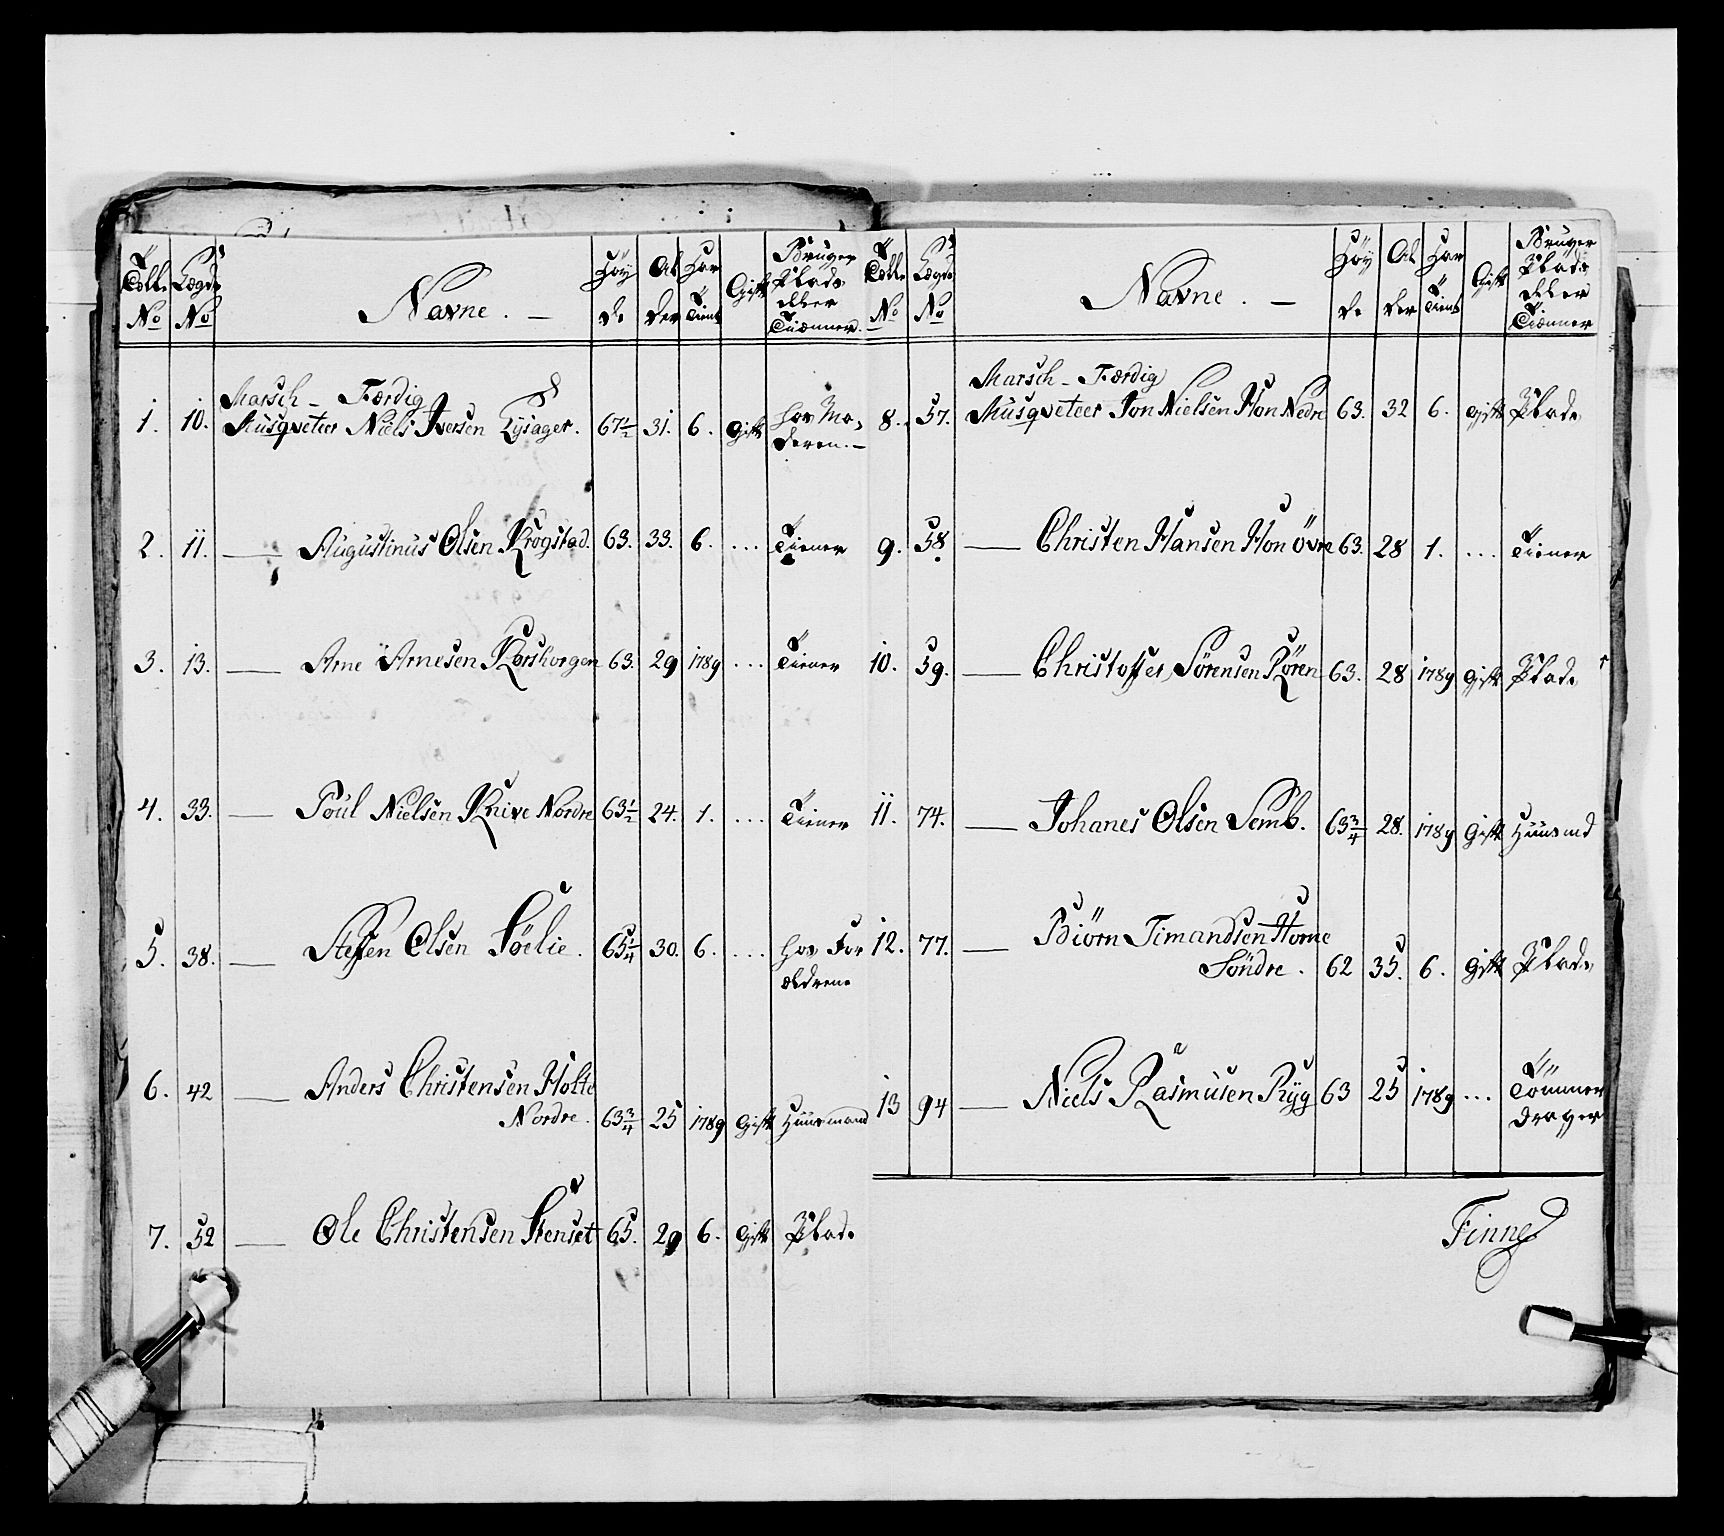 Tælle No | Lægds No | Navne. | Høy de | Al der | Har Tient | Gift | Bruger Plads eller Tiænner.
Marsch-Færdig
1. | 10. | Musqveteer Niels Iversen Lysager. | 67½ | 31. | 6. | Gift | hos Mo-
deren.
2. | 11. | — Augustinus Olsen Krogstad. | 63. | 33. | 6. | ... | Tiener
3. | 13. | — Arne Arnesen Korshorgen | 63. | 29 | 1789 | ... | Tiener
4. | 33. | — Poul Nielsen Knive Nordre | 63½ | 24. | 1. | ... | Tiener
5. | 38. | — Steffen Olsen Søelie. | 65¼ | 30. | 6. | ... | hos For
ældrene
6. | 42 | — Anders Christensen Holte
Nordre. | 63¾ | 25 | 1789 | Gift | Huusmand
7. | 52 | — Ole Christensen Stenset | 65. | 29 | 6. | Gift | Plads
Tælle No | Lægds No | Navne. | Høy de | Al der | Har Tient | Gift | Bruger Plads eller Tiænner
Marsch-Færdig
8. | 57. | Musqveteer Jon Nielsen Hon Nedre | 63. | 32 | 6. | Gift | Plads
9. | 58. | — Christen Hansen Hon Øvre | 63. | 28 | 1. | ... | Tiener
10. | 59. | — Christoffer Sørensen Røren | 63. | 28 | 1789 | Gift | Plads
11. | 74. | — Johanes Olsen Semb. | 63¾ | 28. | 1789 | Gift | Huusmd
12. | 77. | — Biørn Timandsen Horne
Søndre. | 62 | 35. | 6. | Gift | Plads
13 | 94 | — Niels Rasmusen Ryg | 63 | 25 | 1789 | ... | Tømmer
drager
Finne